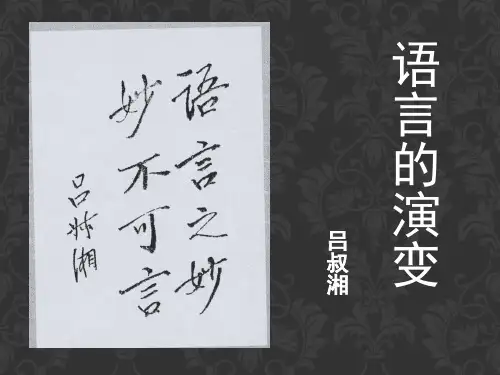 语言的演变
吕叔湘
语言之妙
妙不可言
吕叔湘